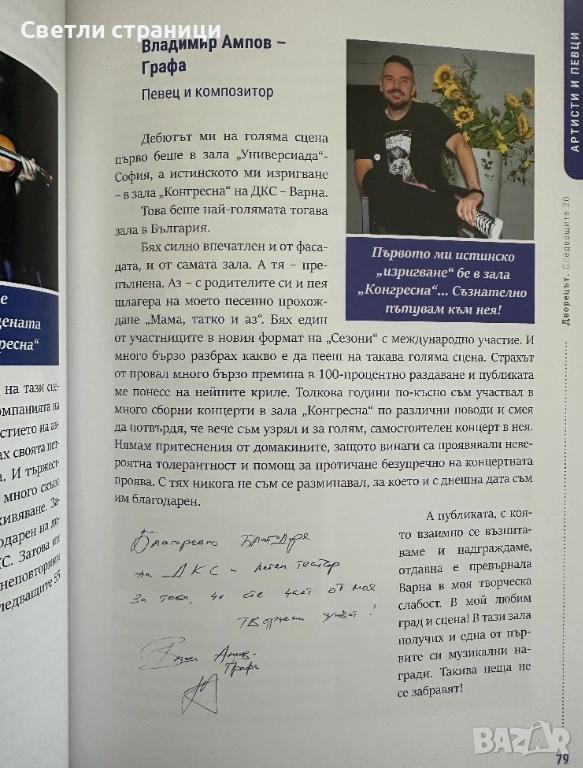 Светли страници
Владимир Ампов –
Графа
Певец и композитор
Дебютът ми на голяма сцена
първо беше в зала „Универсиада“-
София, а истинското ми изригване
– в зала „Конгресна“ на ДКС – Варна.
Това беше най-голямата тогава
зала в България.
Бях силно впечатлен и от фаса-
дата, и от самата зала. А тя – пре-
пълнена. Аз – с родителите си и пея
шлагера на моето песенно прохож-
дане „Мама, татко и аз“. Бях един
от участниците в новия формат на „Сезони“ с международно участие. И
много бързо разбрах какво е да пееш на такава голяма сцена. Страхът
от провал много бързо премина в 100-процентно раздаване и публиката
ме понесе на нейните криле. Толкова години по-късно съм участвал в
много сборни концерти в зала „Конгресна“ по различни поводи и смея
да потвърдя, че вече съм узрял и за голям, самостоятелен концерт в нея.
Нямам притеснения от домакините, защото винаги са проявявали неве-
роятна толерантност и помощ за протичане безупречно на концертната
проява. С тях никога не съм се разминавал, за което и с днешна дата съм
им благодарен.
Първото ми истинско
„изригване“ бе в зала
„Конгресна“... Съзнателно
пътувам към нея!
А публиката, с коя-
то взаимно се възпита-
ваме и надграждаме,
отдавна е превърнала
Варна в моя творческа
слабост. В мой любим
град и сцена! В тази зала
получих и една от пър-
вите си музикални на-
гради. Такива неща не
се забравят!
на ДКС и Летен театър
за това, че сте част от моя
творчески живот!
Ампов-
Графа
АРТИСТИ И ПЕВЦИ
Дворецът. Следващите 20
79
BAZAR
е
сцената
гресна“
на тази сце-
компанията на
астието на ан-
ах своята пет-
а. И тържест-
много скъпо
живяване. За-
одарен на ди-
КС. Затова или
неповторими
ледващите 55